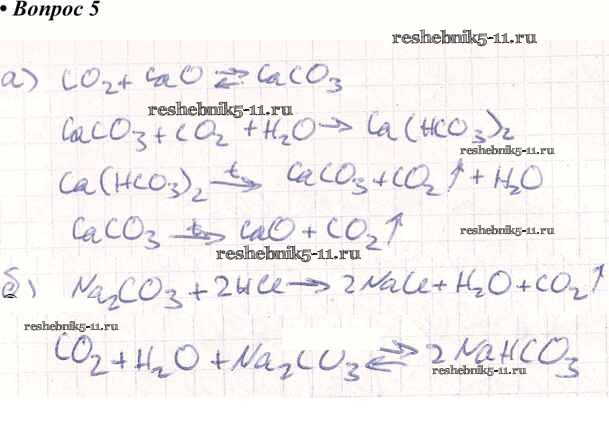 • Вопрос 5
reshebnik5-11.ru
а) CO₂ + CaO ⇄ CaCO₃
reshebnik5-11.ru
CaCO₃ + CO₂ + H₂O → Ca(HCO₃)₂
reshebnik5-11.ru
Ca(HCO₃)₂ →t CaCO₃ + CO₂↑ + H₂O
CaCO₃ →t CaO + CO₂↑
reshebnik5-11.ru
reshebnik5-11.ru
б) Na₂CO₃ + 2HCl → 2NaCl + H₂O + CO₂↑
reshebnik5-11.ru
CO₂ + H₂O + Na₂CO₃ ⇄ 2NaHCO₃
reshebnik5-11.ru